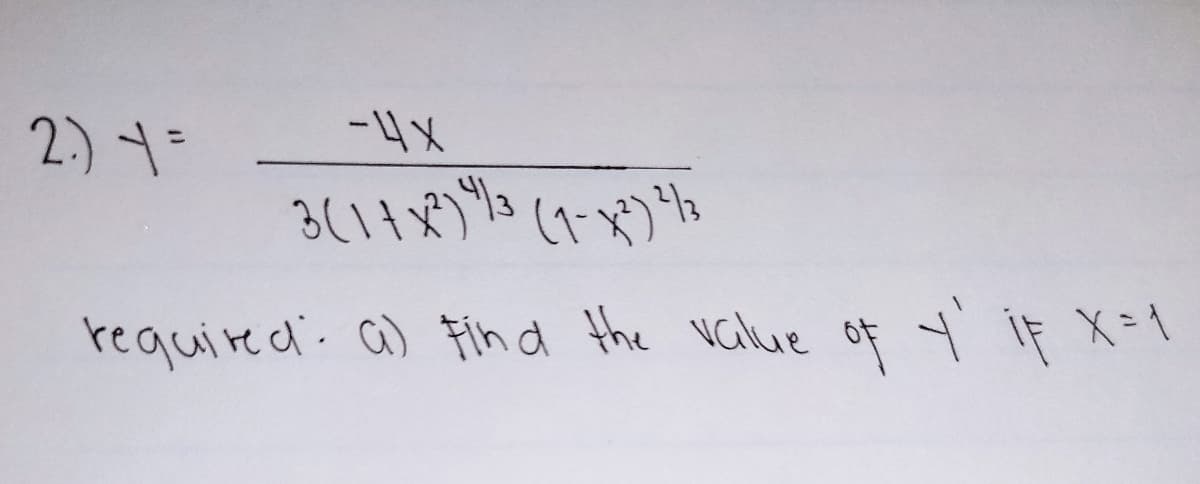 2.) y = -4x
3(1+x²)^4/3 (1-x²)^2/3
required: a) find the value of y' if x=1